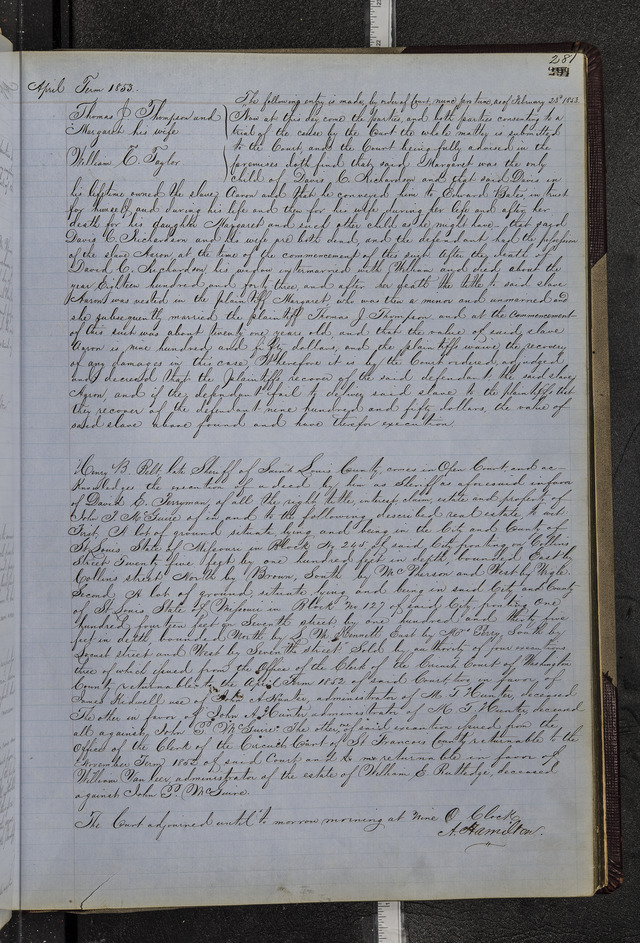 281
297
April Term 1853.
Thomas J Thompson and
Margaret his wife
William C. Taylor
The following entry is made by order of Court, nunc pro tunc, as of February 25th 1853.
Now at this day come the parties, and both parties consenting to a
trial of the cause by the Court the whole matter is submitted
to the Court, and the Court being fully advised in the
premises doth find that said Margaret was the only
child of David C. Richardson and that said David in
his lifetime owned the slave Aaron and that he conveyed him to Edward Bates, in trust
for himself, and during his life and then for his wife during her life and after her
death for his daughter Margaret and such other child as he might have that said
David C. Richardson and his wife are both dead, and the defendant had the possession
of the slave Aaron, at the time of the commencement of this suit. After the death of
David C. Richardson, his widow intermarried with William and died about the
year Eighteen hundred and forty three, and after her death the title to said slave
Aaron was vested in the plaintiff Margaret, who was then a minor and unmarried and
she subsequently married the plaintiff Thomas J Thompson and at the commencement
of this suit was about twenty one years old, and that the value of said slave
Aaron is nine hundred and fifty dollars, and the plaintiffs waive the recovery
of any damages in this case. Wherefore it is by the Court ordered, adjudged
and decreed that the plaintiffs recover of the said defendant the said slave
Aaron, and if the defendant fail to deliver said slave to the plaintiffs that
they recover of the defendant nine hundred and fifty dollars, the value of
said slave above found and have therefor execution.
Henry B. Belt, late Sheriff of Saint Louis County, comes in Open Court and ac-
knowledges the execution of a deed by him as Sheriff as aforesaid in favor
of David E. Perryman, of all the right, title, interest, claim, estate and property of
John P. McGuire of in, and to the following described real estate to wit
First, A lot of ground situate, lying and being in the City and County of
St. Louis State of Missouri in Block No 245 of said City fronting on Collins
Street Twenty five feet by one hundred feet in depth, bounded East by
Collins street North by Brown, South by McPherson and West by
Second, A lot of ground situate, lying and being in said City and County
of St. Louis State of Missouri in Block No 127 of said City, fronting One
hundred fourteen feet on Seventh street by one hundred and thirty five
feet in depth, bounded North by L. M. Kennett East by Mrs Perry, South by
Locust street and West by Seventh street. Sold by authority of four executions
three of which issued from the Office of the Clerk of the Circuit Court of Washington
County returnable to the April Term 1852 of said Court, two in favor of
James use of John A. Hunter, administrator of M. T. Hunter, deceased
The other in favor of John A. Hunter administrator of M. T. Hunter, deceased
all against John P. McGuire. The other of said execution issued from the
Office of the Clerk of the Circuit Court of St Francois County returnable to the
November Term 1852 of said Court and is returnable in favor of
William Vanleer, administrator of the estate of William E. Rutledge, deceased
against John P. McGuire.
The Court adjourned until to morrow morning at nine O Clock.
A. Hamilton.